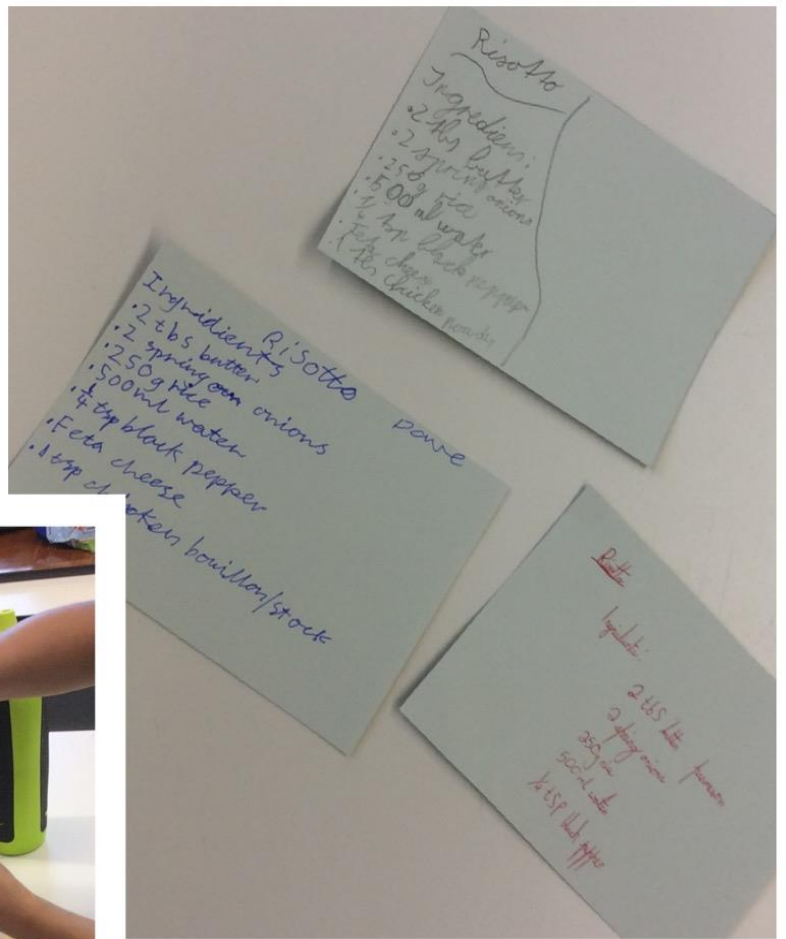 Risotto
Ingrediens:
•2 tbs butter
•2 spring onions
•250g rice
•500 ml water
•¼ tsp black pepper
•Feta cheese
•1 tbs chicken powder
Risotto
Ingridients
•2 tbs butter
•2 spring onions
•250g rice
•500ml water
•¼ tsp black pepper
•Feta cheese
•1 tsp chicken bouillon/stock
Risotto
2 tbs
2 spring onions
250g rice
500ml water
¼ tsp black pepper